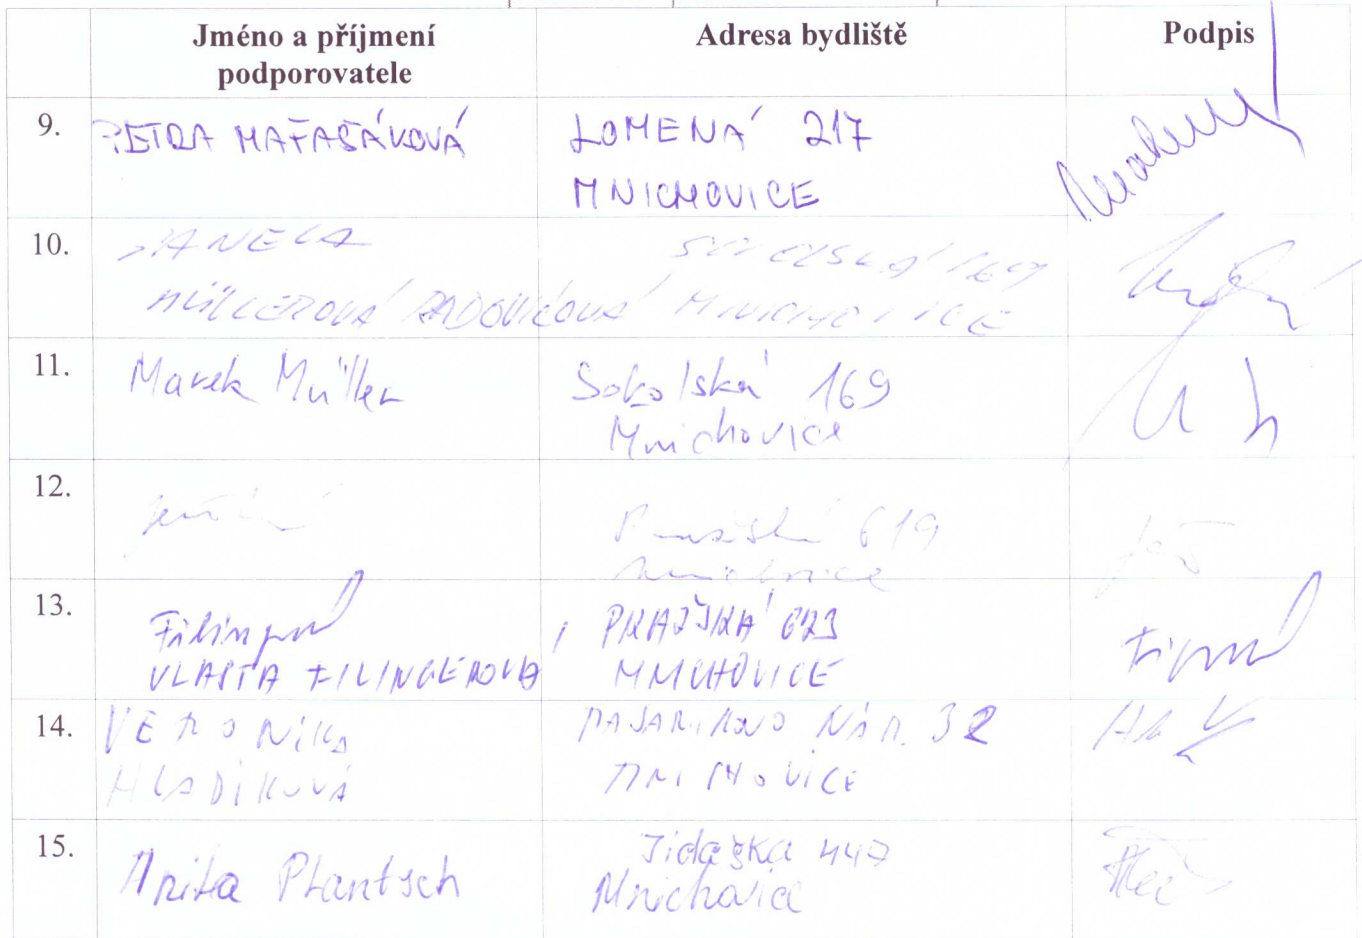 Jméno a příjmení
podporovatele
Adresa bydliště
Podpis
9.
PETRA MAŤAŠÁKOVÁ
LOMENÁ 217
MNICHOVICE
10.
MÜLLEROVÁ RADOVIČOVÁ
MNICHOVICE
11.
Marek Müller
Sokolská 169
Mnichovice
12.
619
13.
VLASTA FILINGEROVÁ
PRAŽSKÁ 623
MNICHOVICE
14.
VERONIKA
HLADÍKOVÁ
MASARYKOVO NÁM. 32
MNICHOVICE
15.
Anita Plantsch
Jidaška 447
Mnichovice